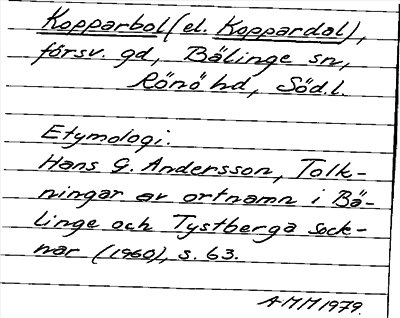 Kopparbol (el. Koppardal),
försv. gd, Bälinge sn,
Rönö hd, Söd.l.
Etymologi.
Hans G. Andersson, Tolk-
ningar av ortnamn i Bä-
linge och Tystberga sock-
nar (1960), s. 63.
AMM 1979.